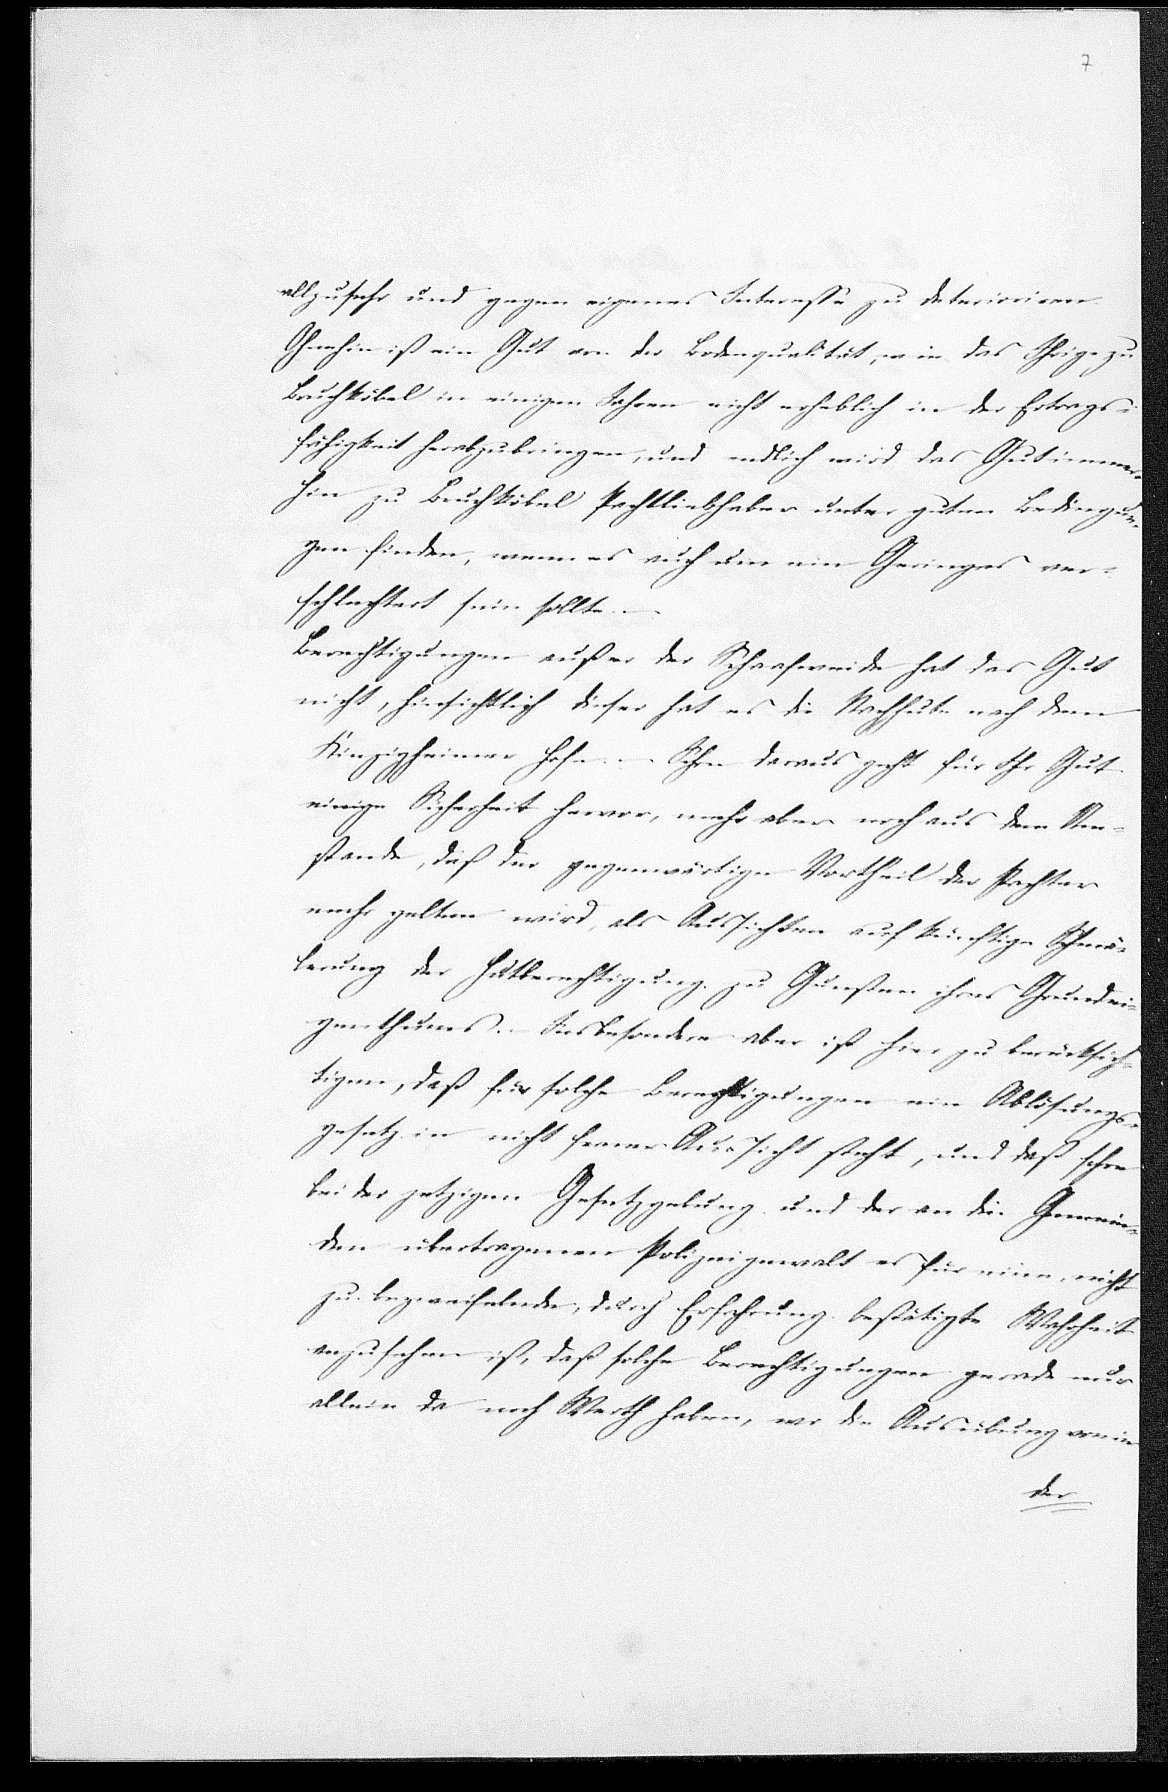 7
allzusehr und gegen eigenes Interesse zu deterioriren
Ohnehin ist ein Gut von der Bodenqualität, wie das Ihrige zu
Bruchköbel in einigen Jahren nicht erheblich in der Ertrags-
fähigkeit herabzubringen, und endlich wird das Gut immer-
hin zu Bruchköbel Pachtliebhaber unter guten Bedingun-
gen finden, wenn es auch um ein Geringes ver-
schlechtert sein sollte. —
Berechtigungen außer der Schaafweide hat das Gut
nicht, hinsichtlich dieser hat es die Nachhute nach dem
Kinzigheimer Hofe. — Schon daraus geht für Ihr Gut
einige Sicherheit hervor, mehr aber noch aus dem Um-
stande, daß der gegenwärtige Vortheil der Pachter
mehr gelten wird, als Aussichten auf künftige Schmä-
lerung der Hutberechtigung zu Gunsten ihres Grundei-
genthums. — Insbesondere aber ist hier zu berücksich-
tigen, daß für solche Berechtigungen ein Ablösungs-
gesetz in nicht ferner Aussicht steht, und daß schon
bei der jetzigen Gesetzgebung und der an die Gemein-
den übertragenen Polizeigewalt es für eine, nicht
zu bezweifelnde, durch Erfahrung bestätigte Wahrheit
anzusehen ist, daß solche Berechtigungen gerade nur
allein da noch Werth haben, wo die Ausübung von in
der